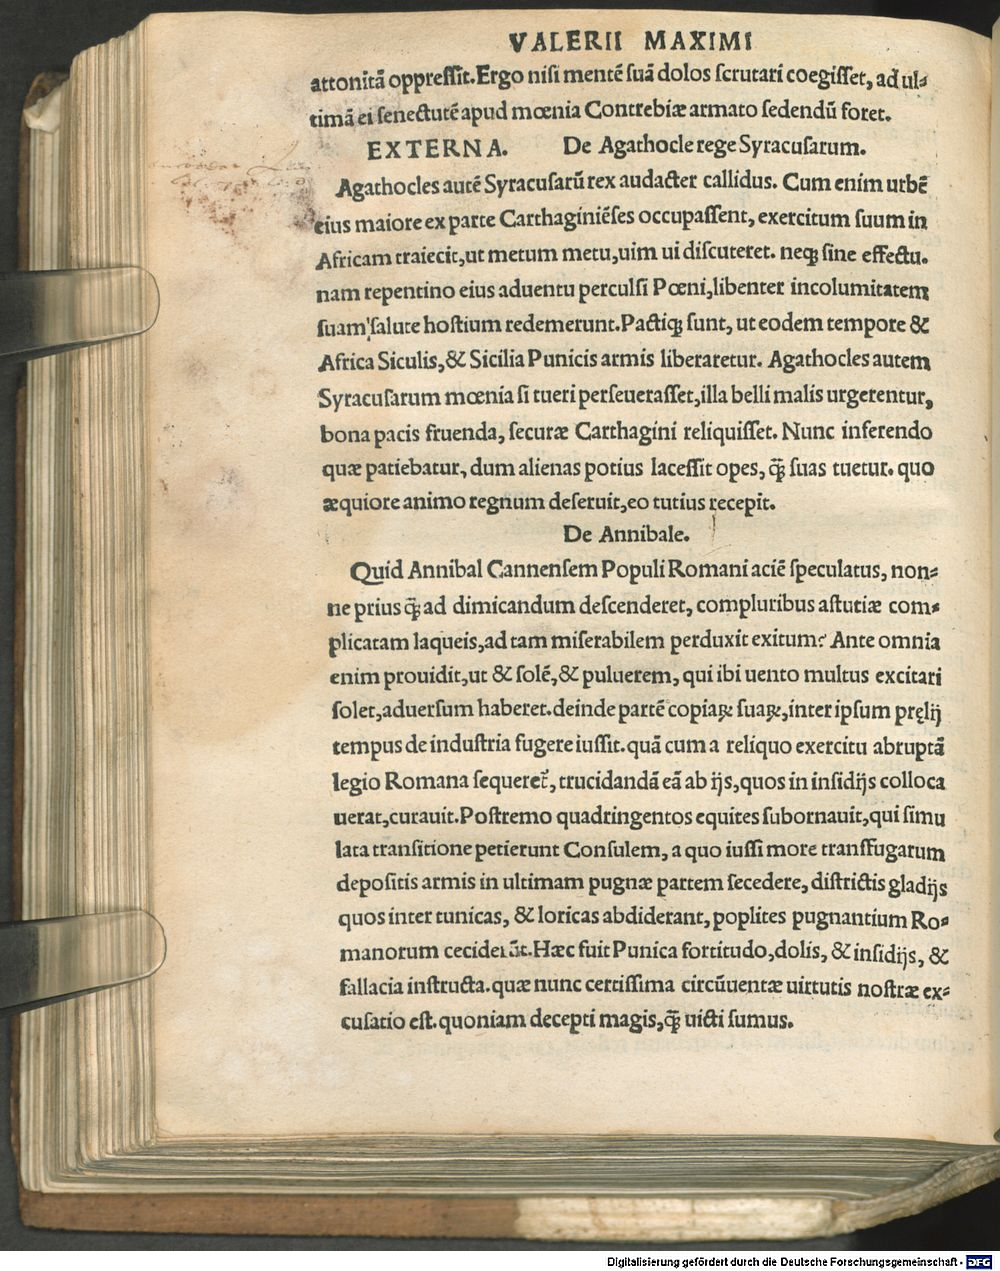 VALERII MAXIMI
attonitã oppreſſit.Ergo niſi mentẽ ſuã dolos ſcrutari coegiſſet, ad ul⸗
timã ei ſenectutẽ apud mœnia Contrebiæ armato ſedendũ foret.
EXTERNA. De Agathocle rege Syracuſarum.
Agathocles autẽ Syracuſarũ rex audacter callidus. Cum enim urbẽ
eius maiore ex parte Carthaginiẽſes occupaſſent, exercitum ſuum in
Africam traiecit,ut metum metu,uim ui diſcuteret. neqꝫ ſine effectu.
nam repentino eius aduentu perculſi Pœni,libenter incolumitatem
ſuam ſalute hoſtium redemerunt.Pactiqꝫ ſunt, ut eodem tempore &
Africa Siculis,& Sicilia Punicis armis liberaretur. Agathocles autem
Syracuſarum mœnia ſi tueri perſeueraſſet,illa belli malis urgerentur,
bona pacis fruenda, ſecuræ Carthagini reliquiſſet. Nunc inferendo
quæ patiebatur, dum alienas potius laceſſit opes, q̃ꝫ ſuas tuetur. quo
æquiore animo regnum deſeruit,eo tutius recepit.
De Annibale.
Quid Annibal Cannenſem Populi Romani aciẽ ſpeculatus, non⸗
ne prius q̃ꝫ ad dimicandum deſcenderet, compluribus aſtutiæ com⸗
plicatam laqueis,ad tam miſerabilem perduxit exitum? Ante omnia
enim prouidit,ut & ſolẽ,& puluerem, qui ibi uento multus excitari
ſolet,aduerſum haberet.deinde partẽ copiaꝝ ſuaꝝ,inter ipſum pręlij
tempus de induſtria fugere iuſſit.quã cum a reliquo exercitu abruptã
legio Romana ſequeret᷑, trucidandã eã ab ijs,quos in inſidijs colloca
uerat,curauit.Poſtremo quadringentos equites ſubornauit,qui ſimu
lata tranſitione petierunt Conſulem, a quo iuſſi more tranſfugarum
depoſitis armis in ultimam pugnæ partem ſecedere, diſtrictis gladijs
quos inter tunicas, & loricas abdiderant, poplites pugnantium Ro⸗
manorum ceciderũt.Hæc fuit Punica fortitudo,dolis, & inſidijs, &
fallacia inſtructa.quæ nunc certiſſima circũuentæ uirtutis noſtræ ex⸗
cuſatio eſt.quoniam decepti magis,q̃ꝫ uicti ſumus.
Digitalisierung gefördert durch die Deutsche Forschungsgemeinschaft - DFG